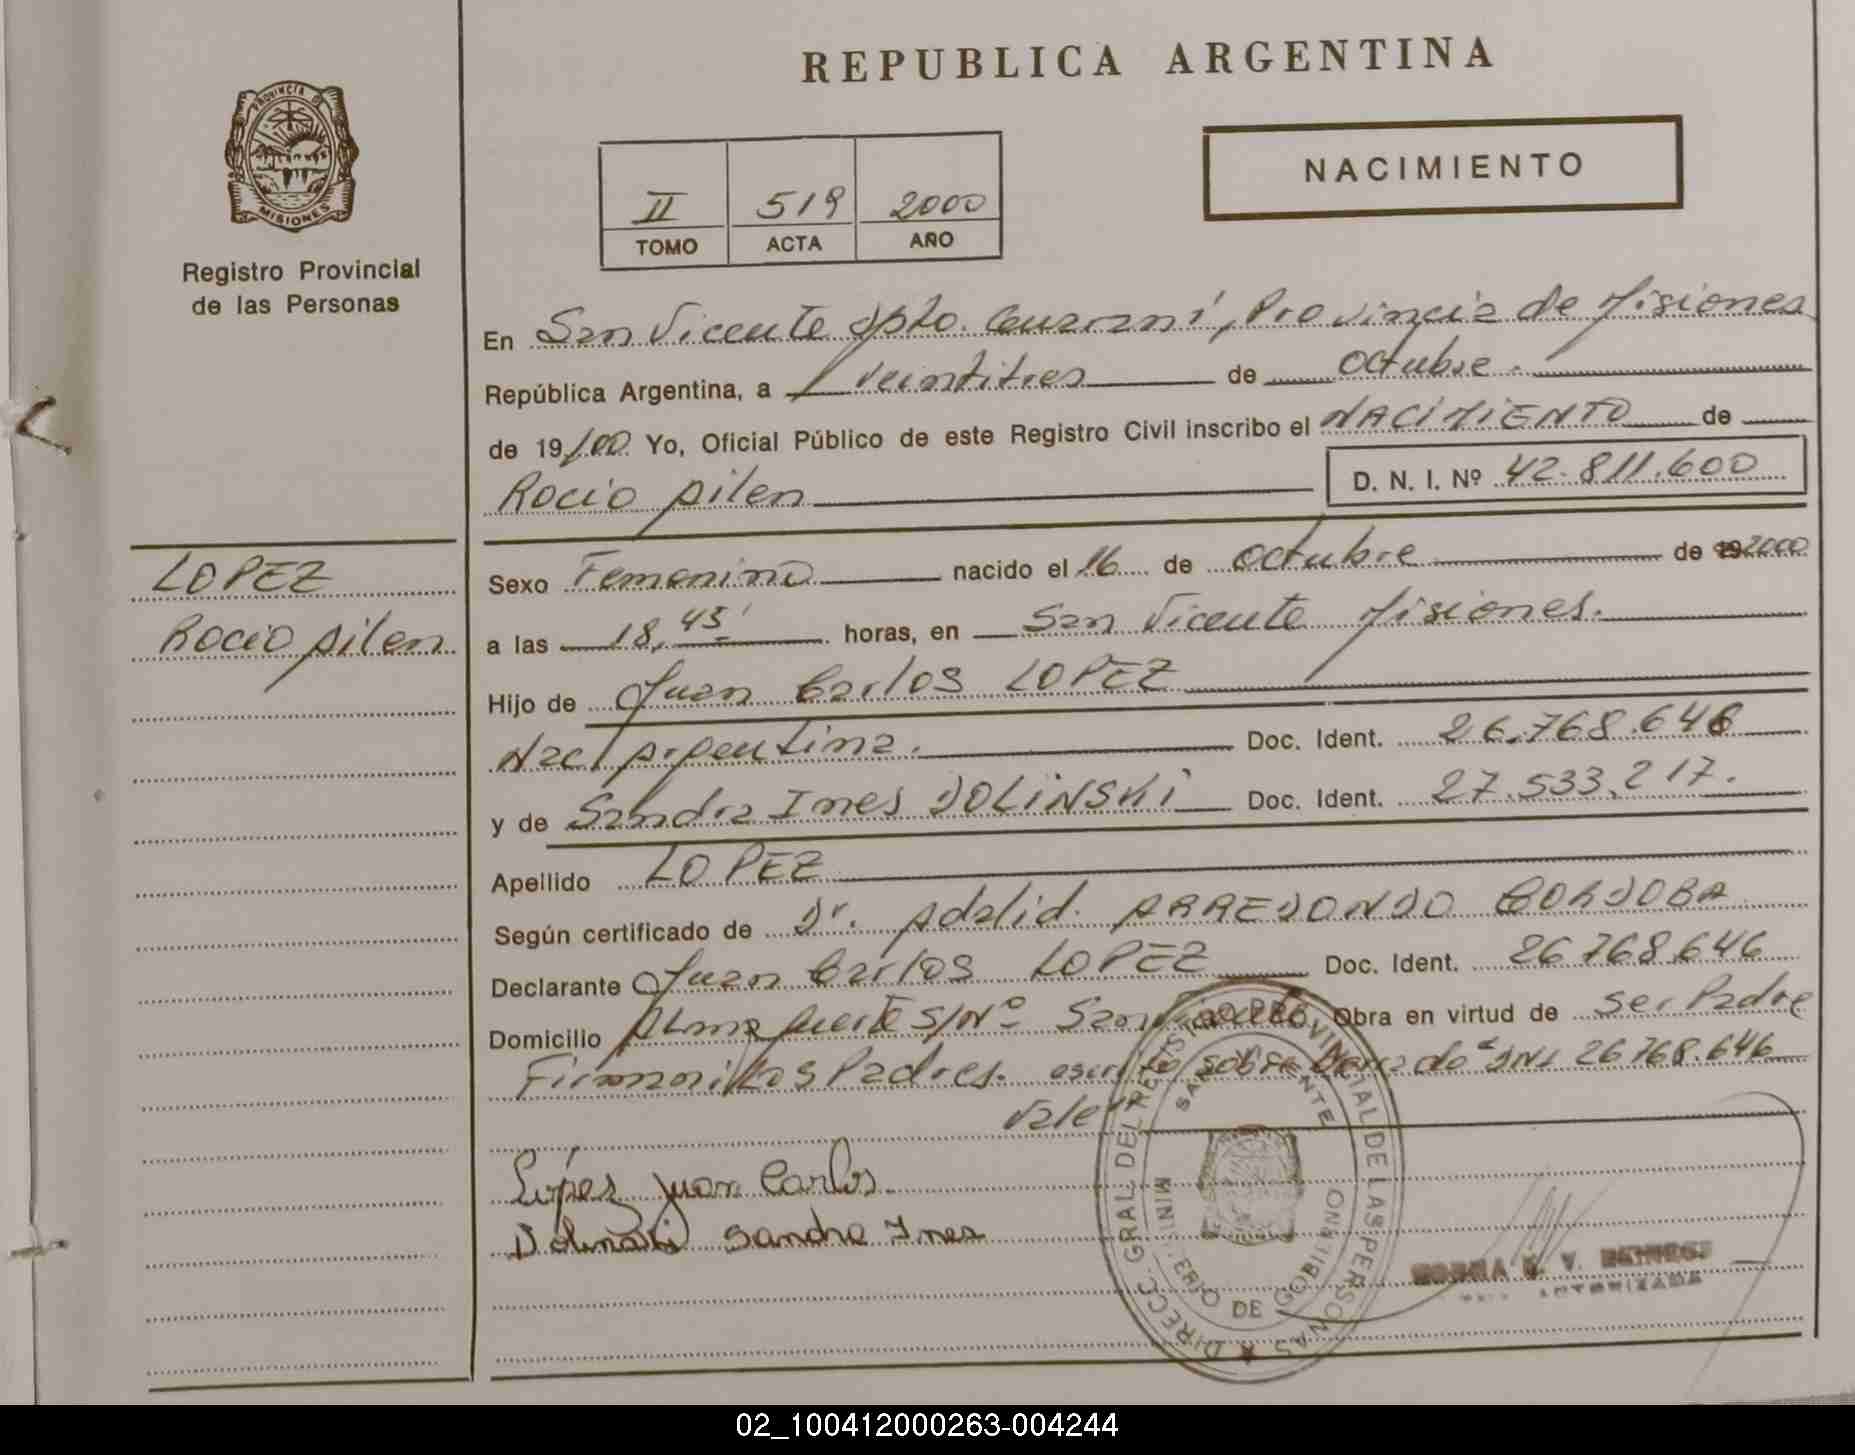 REPUBLICA ARGENTINA
PROVINCIA DE
MISIONES
Registro Provincial
de las Personas
NACIMIENTO
II 519 2000
TOMO ACTA AÑO
En San Vicente Dpto. Guaraní, Provincia de Misiones
República Argentina, a veintitres de octubre.
de 19/00 Yo, Oficial Público de este Registro Civil inscribo el NACIMIENTO de
Rocio Ailen D. N. I. Nº 42.811.600
LOPEZ
Rocio Ailen
Sexo Femenino nacido el 16 de octubre de 19 2000
a las 18,45' horas, en San Vicente Misiones.
Hijo de Juan Carlos LOPEZ
Nac/ Argentina. Doc. Ident. 26.768.646
y de Sandra Ines DOLINSKI Doc. Ident. 27.533.217.
Apellido LOPEZ
Según certificado de Dr. Adalid. ARREDONDO CORDOBA
Declarante Juan Carlos LOPEZ Doc. Ident. 26768.646
Domicilio Almafuerte S/Nº San Vicente Obra en virtud de ser Padre
Firman los Padres. escrito sobre borrado "DNI 26768.646
Vale"
López Juan Carlos
Dolinski Sandra Ines
DIRECC. GRAL. DEL REGISTRO PROVINCIAL DE LAS PERSONAS
SAN VICENTE
MINISTERIO DE GOBIERNO
AUTORIZADA
02_100412000263-004244